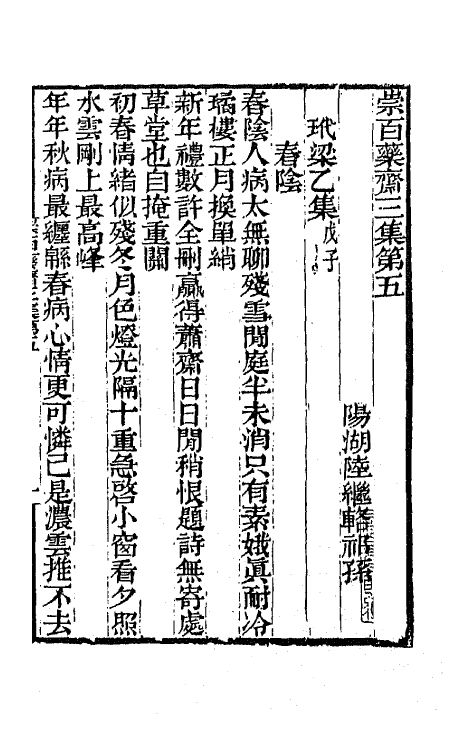 崇百藥齋三集第五
陽湖陸繼輅祁孫
玳梁乙集戊子
春陰
春陰人病太無聊殘雪閒庭半未消只有素娥眞耐冷
璚樓正月換單綃
新年禮數許全刪贏得蕭齋日日閒稍恨題詩無寄處
草堂也自掩重關
初春情緒似殘冬月色燈光隔十重急啓小窗看夕照
水雲剛上最高峰
年年秋病最纏緜春病心情更可憐已是濃雲推不去